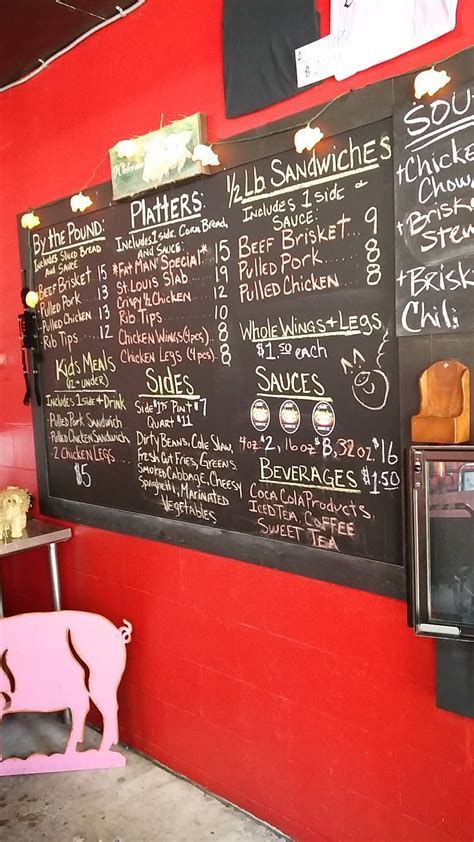 By the Pound:
Includes Sliced Bread
and Sauce
Beef Brisket 15
Pulled Pork.. 13
Pulled Chicken 13
Rib Tips .. 12
Kid's Meals
(12 + under)
Includes 1 side + Drink
Pulled Pork Sandwich
Pulled Chicken Sandwich
2 Chicken Legs ...
$5
Platters:
Includes 1 side, Corn Bread,
and Sauce
*Fat Man' Special* 15
St. Louis Slab . 19
Crispy ½ Chicken . 12
Rib Tips ... 10
Chicken Wings (4pcs) 8
Chicken Legs (4pcs). 8
Sides
Side $1.75 Pint $7
Quart $11
Dirty Beans, Cole Slaw,
Fresh Cut Fries, Greens
Smoked Cabbage, Cheesy
Spaghetti, Marinated
Vegetables
½ Lb. Sandwiches
Includes 1 side &
Sauce:
Beef Brisket... 9
Pulled Pork... 8
Pulled Chicken . 8
Whole Wings + Legs
$1.50 each
Sauces
4oz 2, 16oz $8, 32oz. $16
Beverages $1.50
Coca Cola Products,
Iced Tea, Coffee
Sweet Tea
Sou
+Chicken
Chow
+Brisk
Stew
+Brisk
Chili